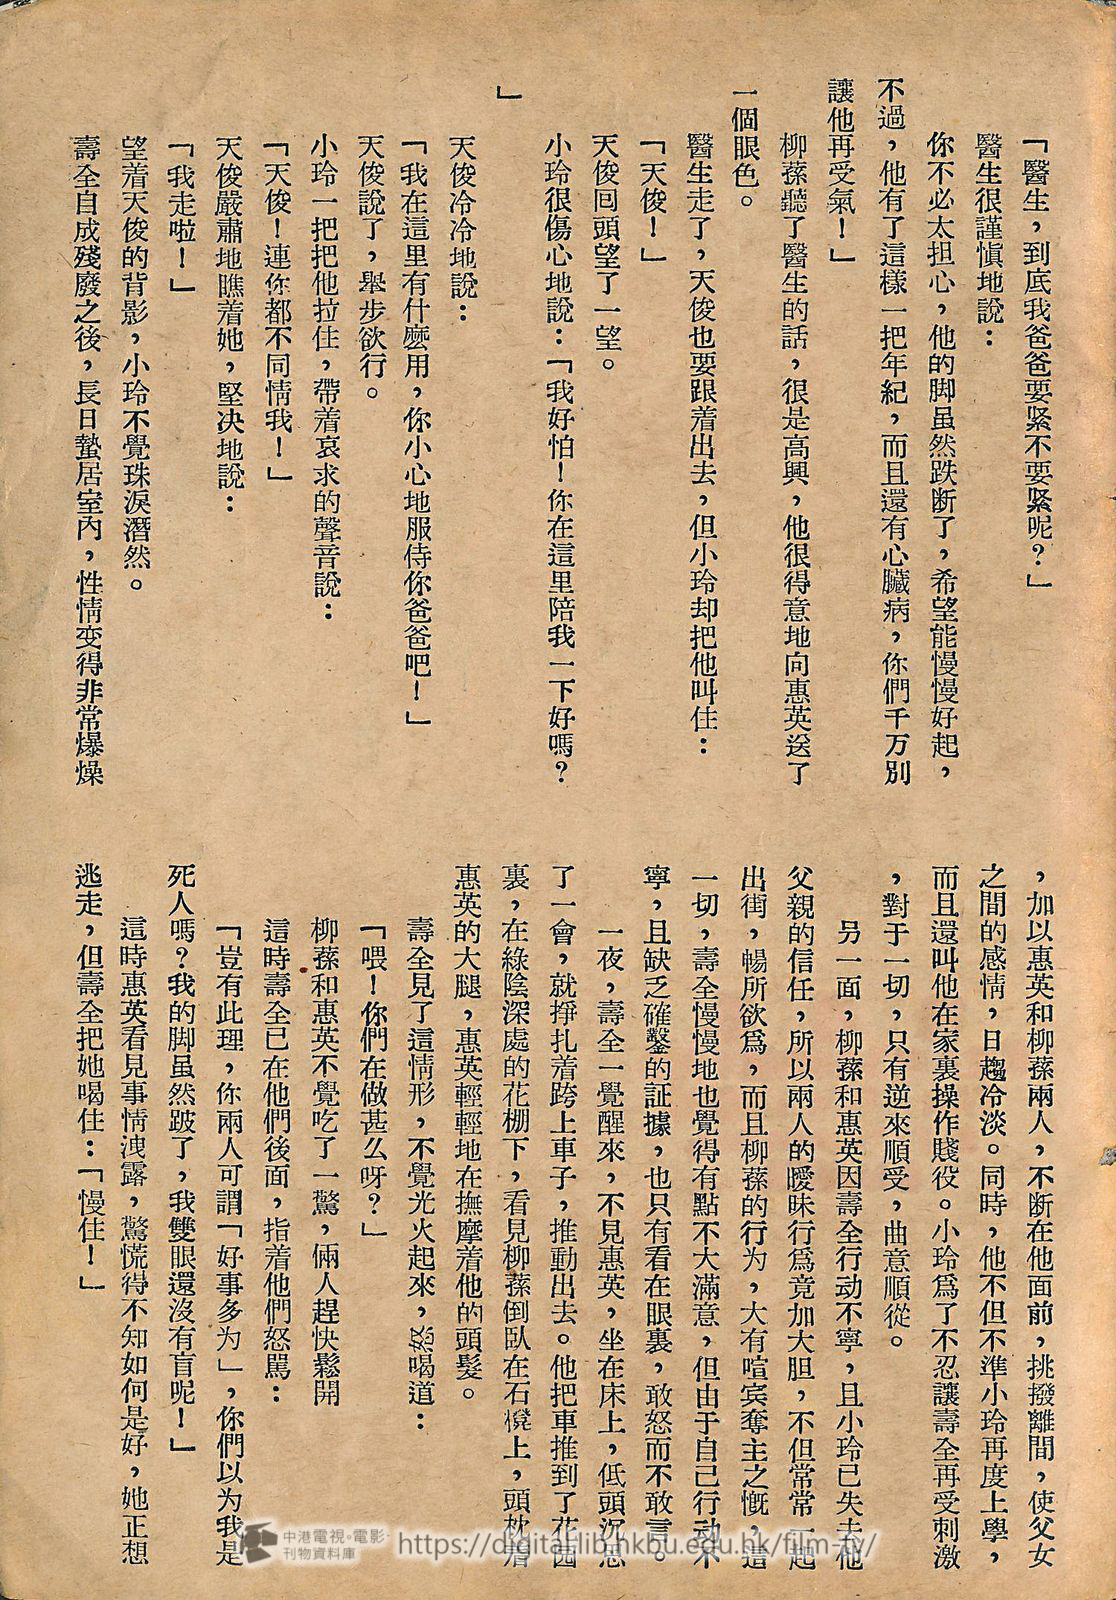 「醫生，到底我爸爸要緊不要緊呢？」
醫生很謹慎地說：
你不必太担心，他的脚虽然跌断了，希望能慢慢好起，
不過，他有了這樣一把年紀，而且還有心臟病，你們千万別
讓他再受氣！」
柳蓀聽了醫生的話，很是高興，他很得意地向惠英送了
一個眼色。
醫生走了，天俊也要跟着出去，但小玲却把他叫住：
「天俊！」
天俊回頭望了一望。
小玲很傷心地說：「我好怕！你在這里陪我一下好嗎？
」
天俊冷冷地說：
「我在這里有什麽用，你小心地服侍你爸爸吧！」
天俊說了，舉步欲行。
小玲一把把他拉住，帶着哀求的聲音說：
「天俊！連你都不同情我！」
天俊嚴肅地瞧着她，堅决地說：
「我走啦！」
望着天俊的背影，小玲不覺珠淚潛然。
壽全自成殘廢之後，長日蟄居室內，性情变得非常爆燥
，加以惠英和柳蓀兩人，不断在他面前，挑撥離間，使父女
之間的感情，日趨冷淡。同時，他不但不準小玲再度上學，
而且還叫他在家裏操作賤役。小玲爲了不忍讓壽全再受刺激
，對于一切，只有逆來順受，曲意順從。
另一面，柳蓀和惠英因壽全行动不寧，且小玲已失去他
父親的信任，所以兩人的曖昧行爲竟加大胆，不但常常一起
出街，暢所欲爲，而且柳蓀的行为，大有喧宾奪主之慨，這
一切，壽全慢慢地也覺得有點不大滿意，但由于自己行动不
寧，且缺乏確鑿的証據，也只有看在眼裏，敢怒而不敢言。
一夜，壽全一覺醒來，不見惠英，坐在床上，低頭沉思
了一會，就掙扎着跨上車子，推動出去。他把車推到了花园
裏，在綠陰深處的花棚下，看見柳蓀倒臥在石櫈上，頭枕着
惠英的大腿，惠英輕輕地在撫摩着他的頭髮。
壽全見了這情形，不覺光火起來，怒喝道：
「喂！你們在做甚么呀？」
柳蓀和惠英不覺吃了一驚，倆人趕快鬆開
這時壽全已在他們後面，指着他們怒罵：
「豈有此理，你兩人可謂「好事多为」，你們以为我是
死人嗎？我的脚虽然跛了，我雙眼還沒有盲呢！」
這時惠英看見事情洩露，驚慌得不知如何是好，她正想
逃走，但壽全把她喝住：「慢住！」
中港電視·電影·
刊物資料庫
https://digital.lib.hkbu.edu.hk/film-tv/